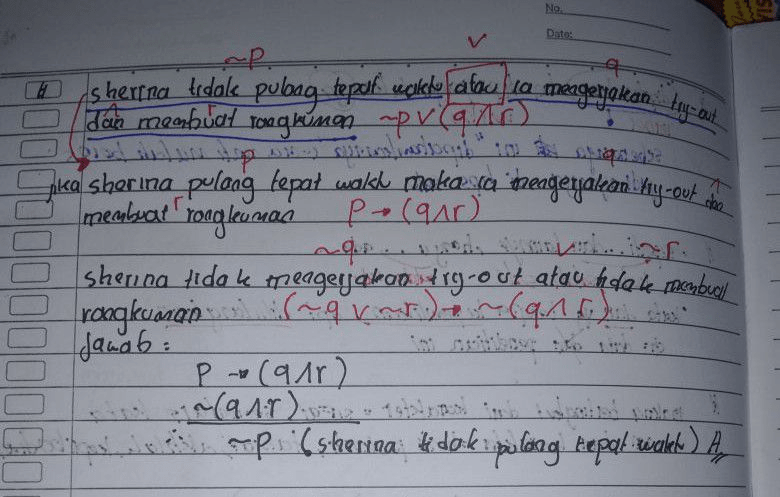 No.
Date:
~p v q
4 sherina tidak pulang tepat waktu atau ia mengerjakan try-out
dan membuat rangkuman ~p v (q ∧ r)
p q
jika sherina pulang tepat waktu maka ia mengerjakan try-out dan
membuat r rangkuman p → (q ∧ r)
~q v ~r
sherina tidak mengerjakan try-out atau tidak membuat
rangkuman (~q v ~r) → ~(q ∧ r)
Jawab :
p → (q ∧ r)
~(q ∧ r)
~p (sherina tidak pulang tepat waktu) A